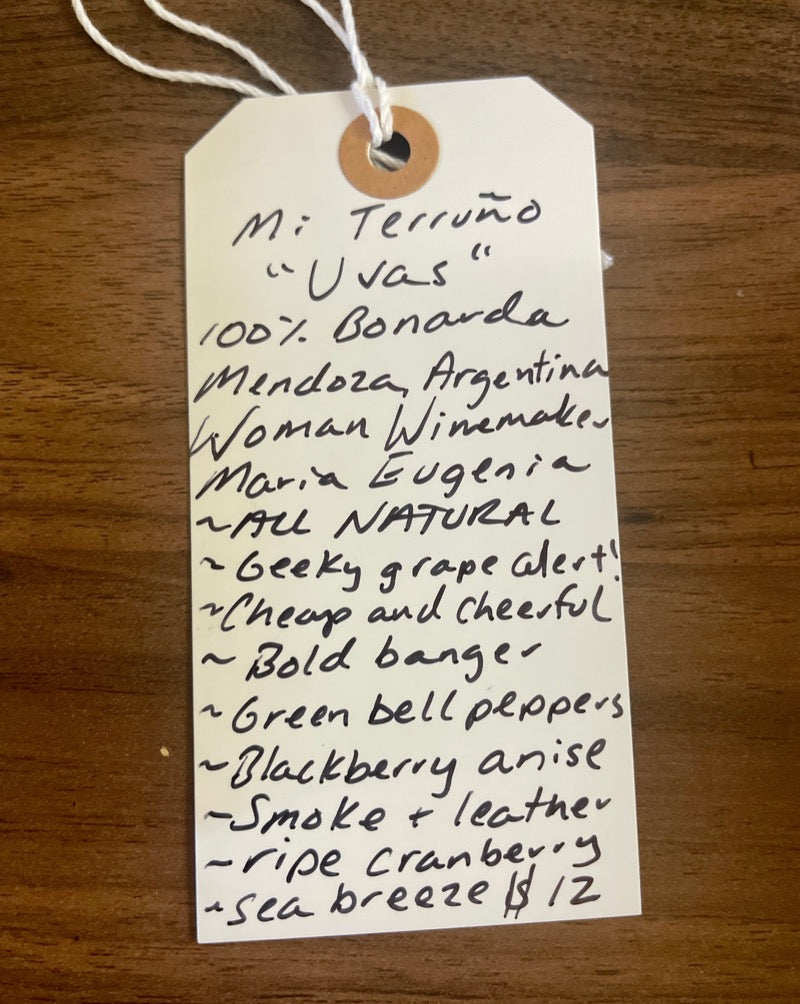 Mi Terruño
"Uvas"
100% Bonarda
Mendoza, Argentina
Woman Winemaker
Maria Eugenia
~ALL NATURAL
~Geeky grape alert!
~Cheap and cheerful
~Bold banger
~Green bell peppers
~Blackberry anise
~Smoke + leather
~ripe cranberry
~sea breeze $12